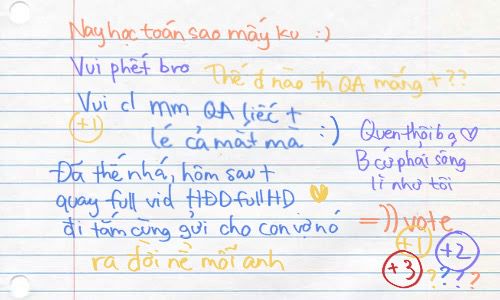 Nay học toán sao mấy ku :)
Vui phết bro
Thế đ nào th QA mắng t ??
Vui cl mm QA liếc t
+1
lé cả mắt mà :)
Quen thôi b ạ
B cứ phải sống
lì như tôi
Đã thế nhá, hôm sau t
quay full vid HDD full HD
đi tắm cùng gửi cho con vợ nó
=)) vote
+1
+2
ra dời nề mối anh
+3
????